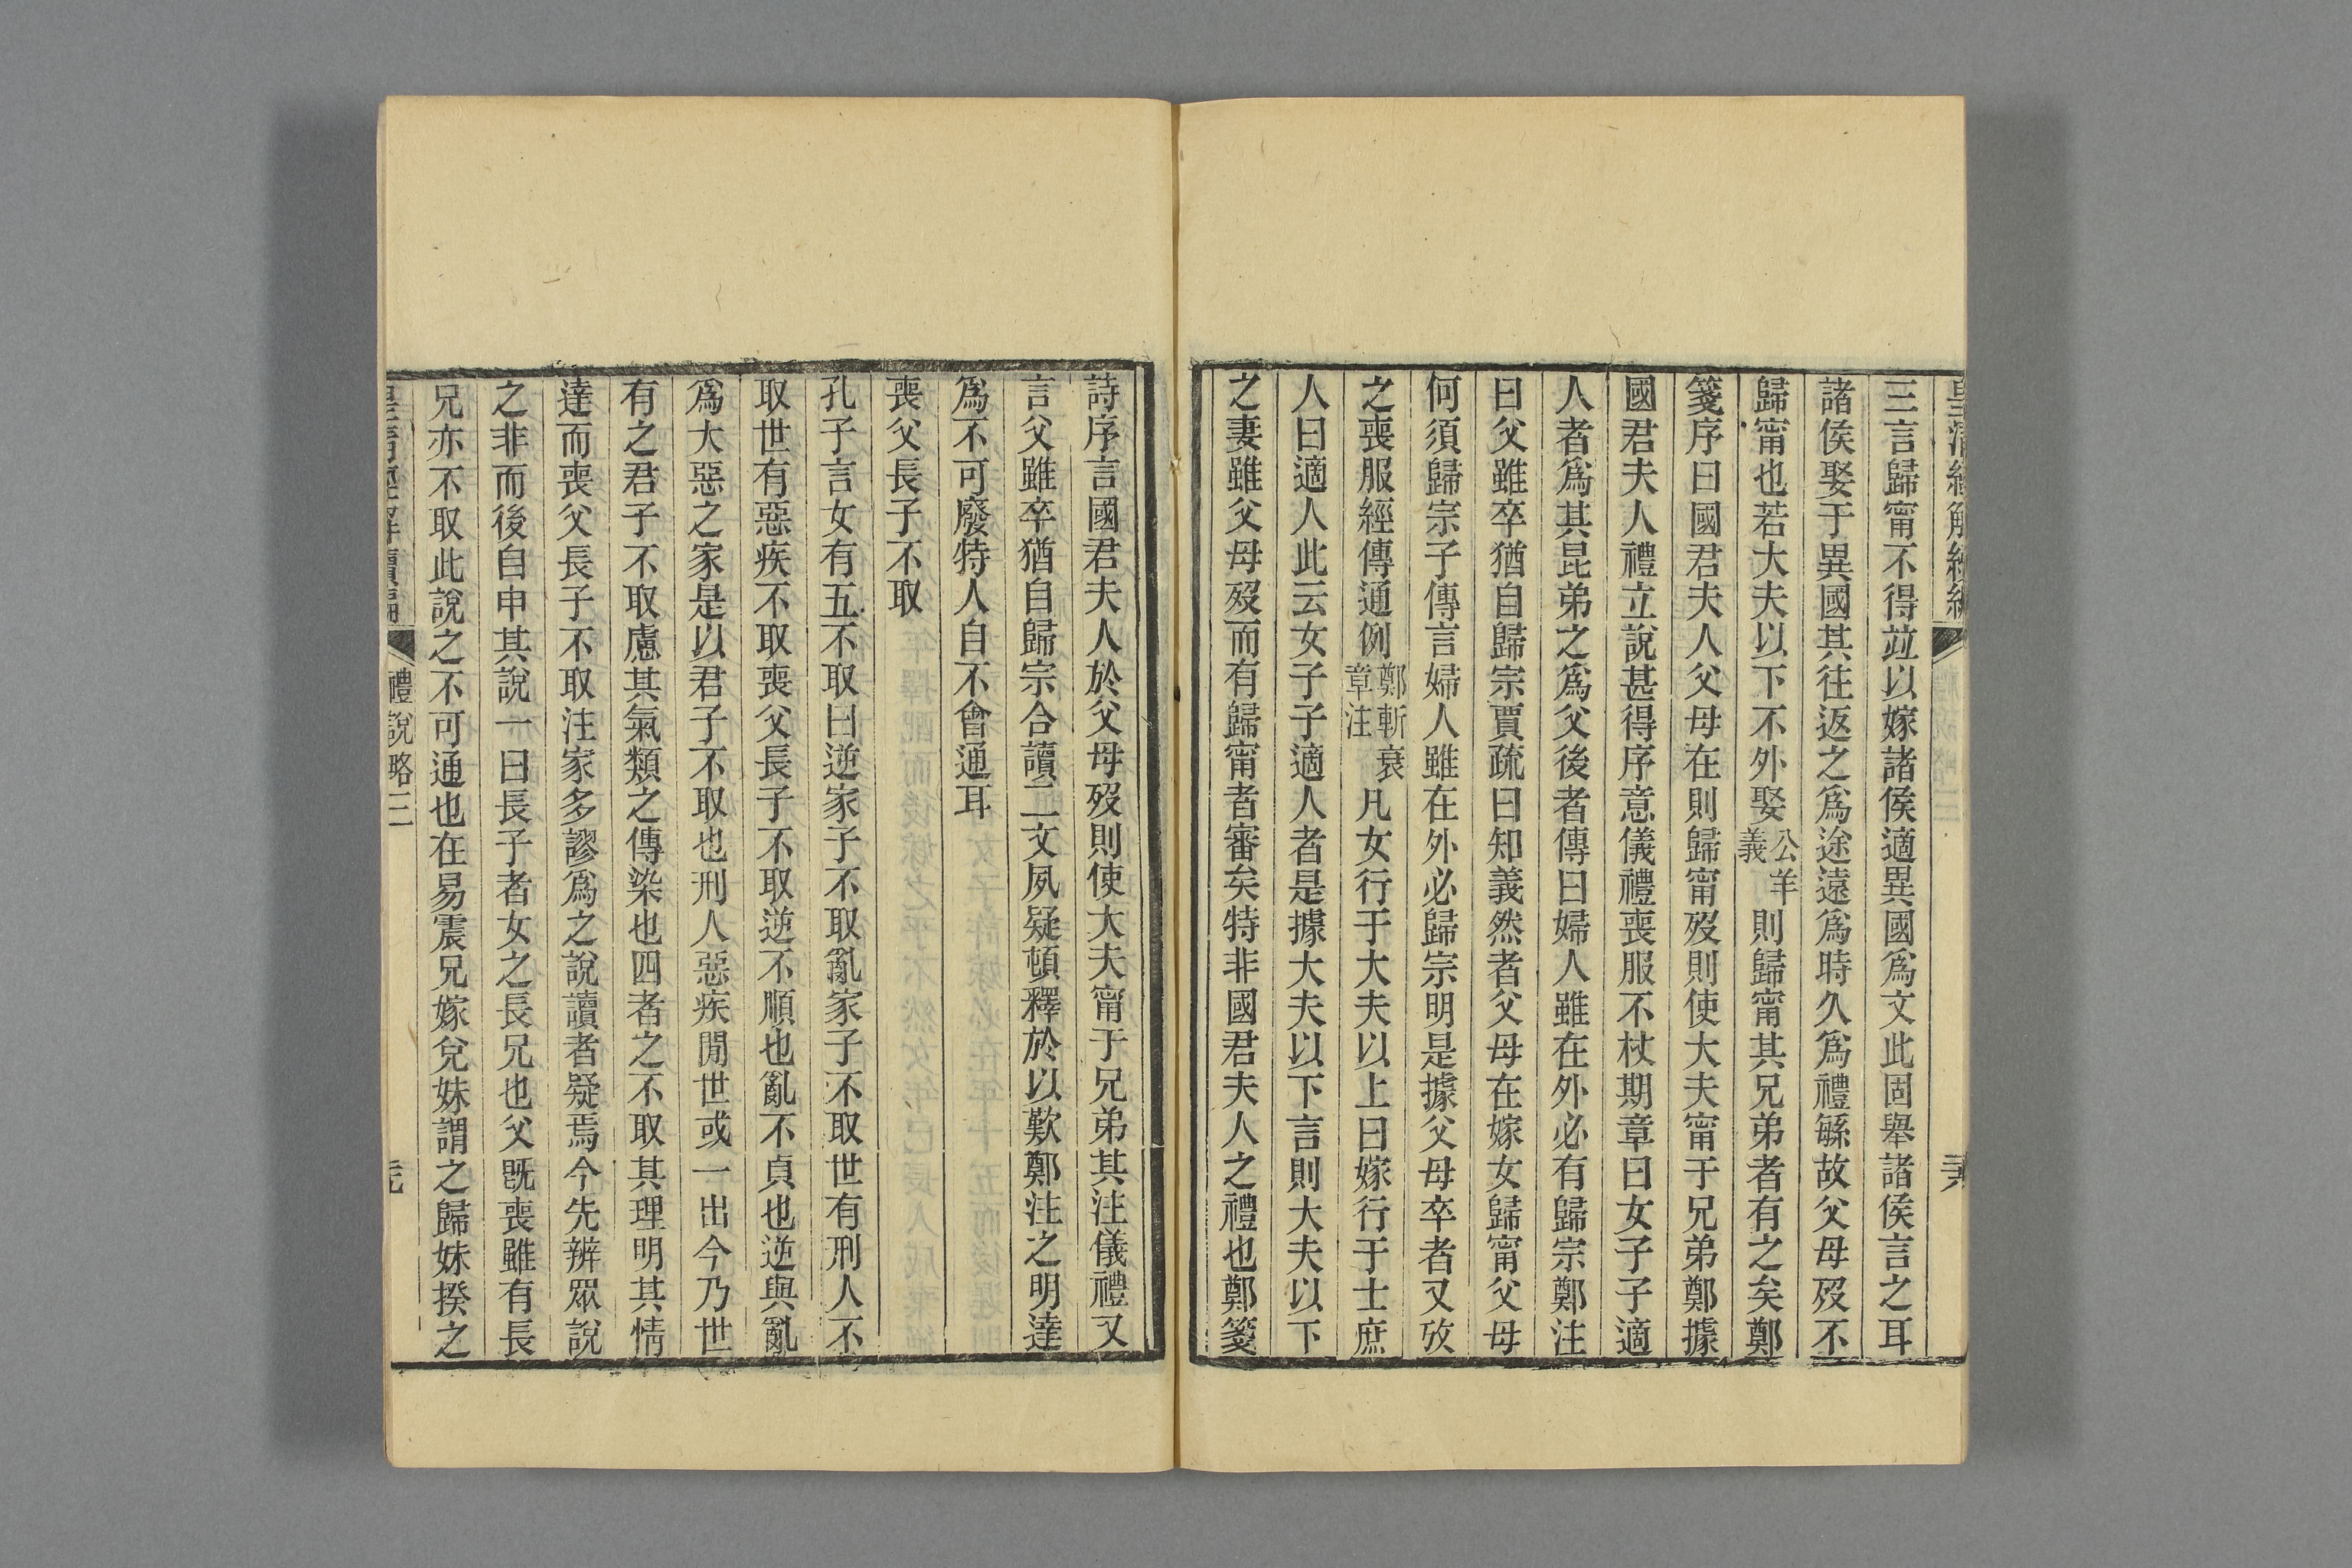 三言歸甯不得竝以嫁諸侯適異國爲文此固舉諸侯言之耳
諸侯娶于異國其往返之爲途遠爲時久爲禮緐故父母歿不
歸甯也若大夫以下不外娶公羊義則歸甯其兄弟者有之矣鄭
箋序曰國君夫人父母在則歸甯歿則使大夫甯于兄弟鄭據
國君夫人禮立說甚得序意儀禮喪服不杖期章曰女子子適
人者爲其昆弟之爲父後者傳曰婦人雖在外必有歸宗鄭注
曰父雖卒猶自歸宗賈疏曰知義然者父母在嫁女歸甯父母
何須歸宗子傳言婦人雖在外必歸宗明是據父母卒者又攷
之喪服經傳通例鄭斬衰章注凡女行于大夫以上曰嫁行于士庶
人曰適人此云女子子適人者是據大夫以下言則大夫以下
之妻雖父母歿而有歸甯者審矣特非國君夫人之禮也鄭箋
詩序言國君夫人於父母歿則使大夫甯于兄弟其注儀禮又
言父雖卒猶自歸宗合讀二文夙疑頓釋於以歎鄭注之明達
爲不可廢特人自不會通耳
喪父長子不取
孔子言女有五不取曰逆家子不取亂家子不取世有刑人不
取世有惡疾不取喪父長子不取逆不順也亂不貞也逆與亂
爲大惡之家是以君子不取也刑人惡疾閒世或一出今乃世
有之君子不取慮其氣類之傳染也四者之不取其理明其情
達而喪父長子不取注家多謬爲之說讀者疑焉今先辨眾說
之非而後自申其說一曰長子者女之長兄也父旣喪雖有長
兄亦不取此說之不可通也在易震兄嫁兌妹謂之歸妹揆之
禮說略三